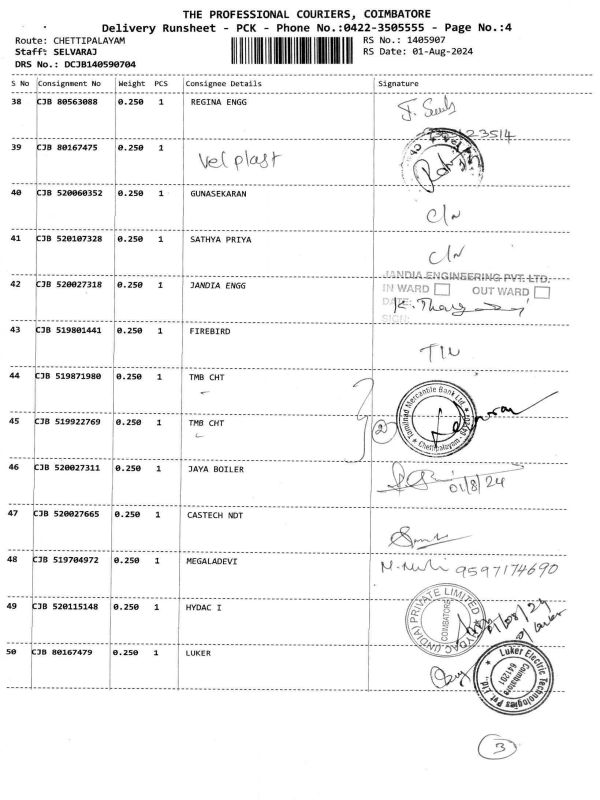 THE PROFESSIONAL COURIERS, COIMBATORE
Delivery Runsheet - PCK - Phone No.:0422-3505555 - Page No.:4
Route: CHETTIPALAYAM RS No.: 1405907
Staff: SELVARAJ RS Date: 01-Aug-2024
DRS No.: DCJB140590704
S No Consignment No Weight PCS Consignee Details Signature
38 CJB 80563088 0.250 1 REGINA ENGG
39 CJB 80167475 0.250 1 Vel plast
40 CJB 520060352 0.250 1 GUNASEKARAN C/N
41 CJB 520107328 0.250 1 SATHYA PRIYA C/N
42 CJB 520027318 0.250 1 JANDIA ENGG
JANDIA ENGINEERING PVT. LTD.
IN WARD OUT WARD
DATE:
SIGN:
43 CJB 519801441 0.250 1 FIREBIRD
44 CJB 519871980 0.250 1 TMB CHT
Tamilnad Mercantile Bank Ltd.
Chettipalayam
45 CJB 519922769 0.250 1 TMB CHT 2
46 CJB 520027311 0.250 1 JAYA BOILER 01/8/24
47 CJB 520027665 0.250 1 CASTECH NDT
48 CJB 519704972 0.250 1 MEGALADEVI 9597174690
49 CJB 520115148 0.250 1 HYDAC I
HYDAC (INDIA) PRIVATE LIMITED
COIMBATORE
50 CJB 80167479 0.250 1 LUKER
Luker Electric Technologies Pvt Ltd.
Coimbatore
641201
3